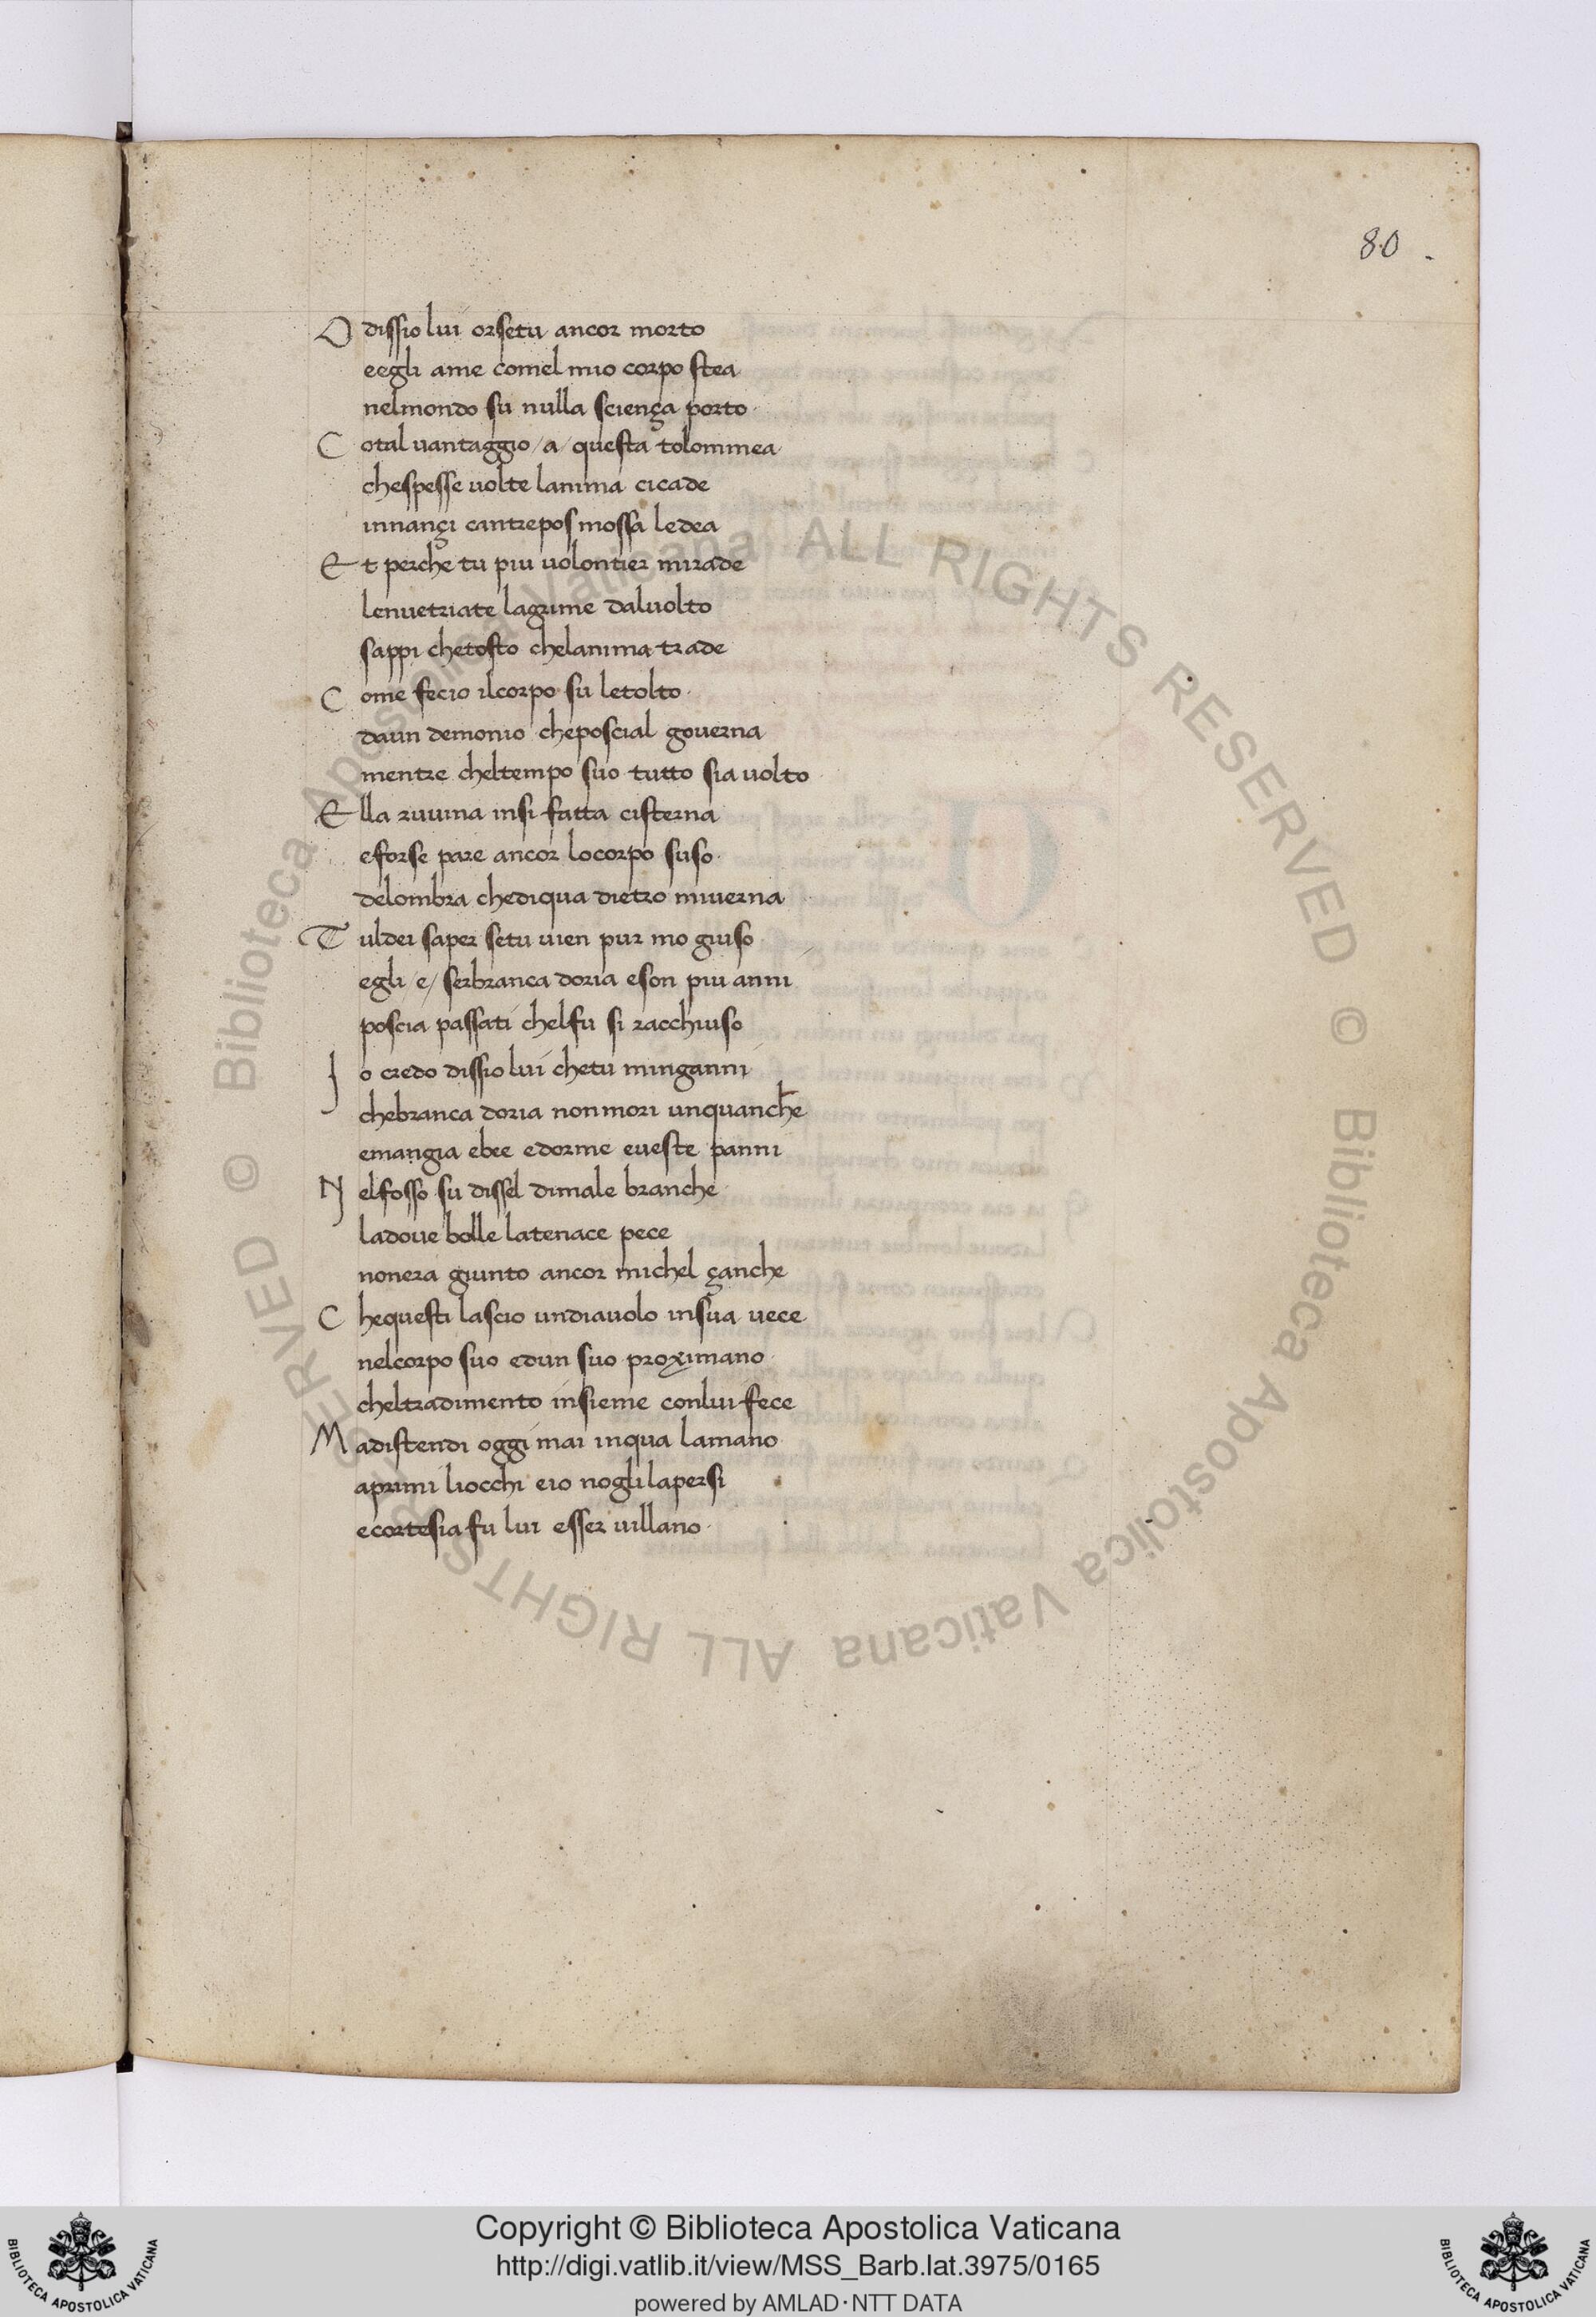 80
O dissio lui orsetu ancor morto
eegli ame comel mio corpo stea
nelmondo su nulla sciença porto
C otal vantaggio /a/ questa tolommea
chespesse volte lanima cicade
innançi cantrepos mossa ledea
E t perche tu piu volontier mirade
lenvetriate lagrime dalvolto
sappi chetosto chelanima trade
C ome fecio ilcorpo su letolto
daun demonio cheposcial governa
mentre cheltempo suo tutto sia volto
E lla ruvina insi fatta cisterna
eforse pare ancor locorpo suso
delombra chediqua dietro miverna
T uldei saper setu vien pur mo giuso
egli /e/ serbranca doria eson piu anni
poscia passati chelfu si racchiuso
I o credo dissio lui chetu minganni
chebranca doria nonmori unquanche
emangia ebee edorme eveste panni
N elfosso su dissel dimale branche
ladove bolle latenace pece
nonera giunto ancor michel çanche
C hequesti lascio undiavolo insua vece
nelcorpo suo edun suo proximano
cheltradimento insieme conlui fece
M adistendi oggi mai inqua lamano
aprimi liocchi eio noglilapersi
ecortesia fu lui esser villano
© Biblioteca Apostolica Vaticana ALL RIGHTS RESERVED © Biblioteca Apostolica Vaticana ALL RIGHTS RESERVED
Copyright © Biblioteca Apostolica Vaticana
http://digi.vatlib.it/view/MSS_Barb.lat.3975/0165
powered by AMLAD·NTT DATA
BIBLIOTECA APOSTOLICA VATICANA
BIBLIOTECA APOSTOLICA VATICANA